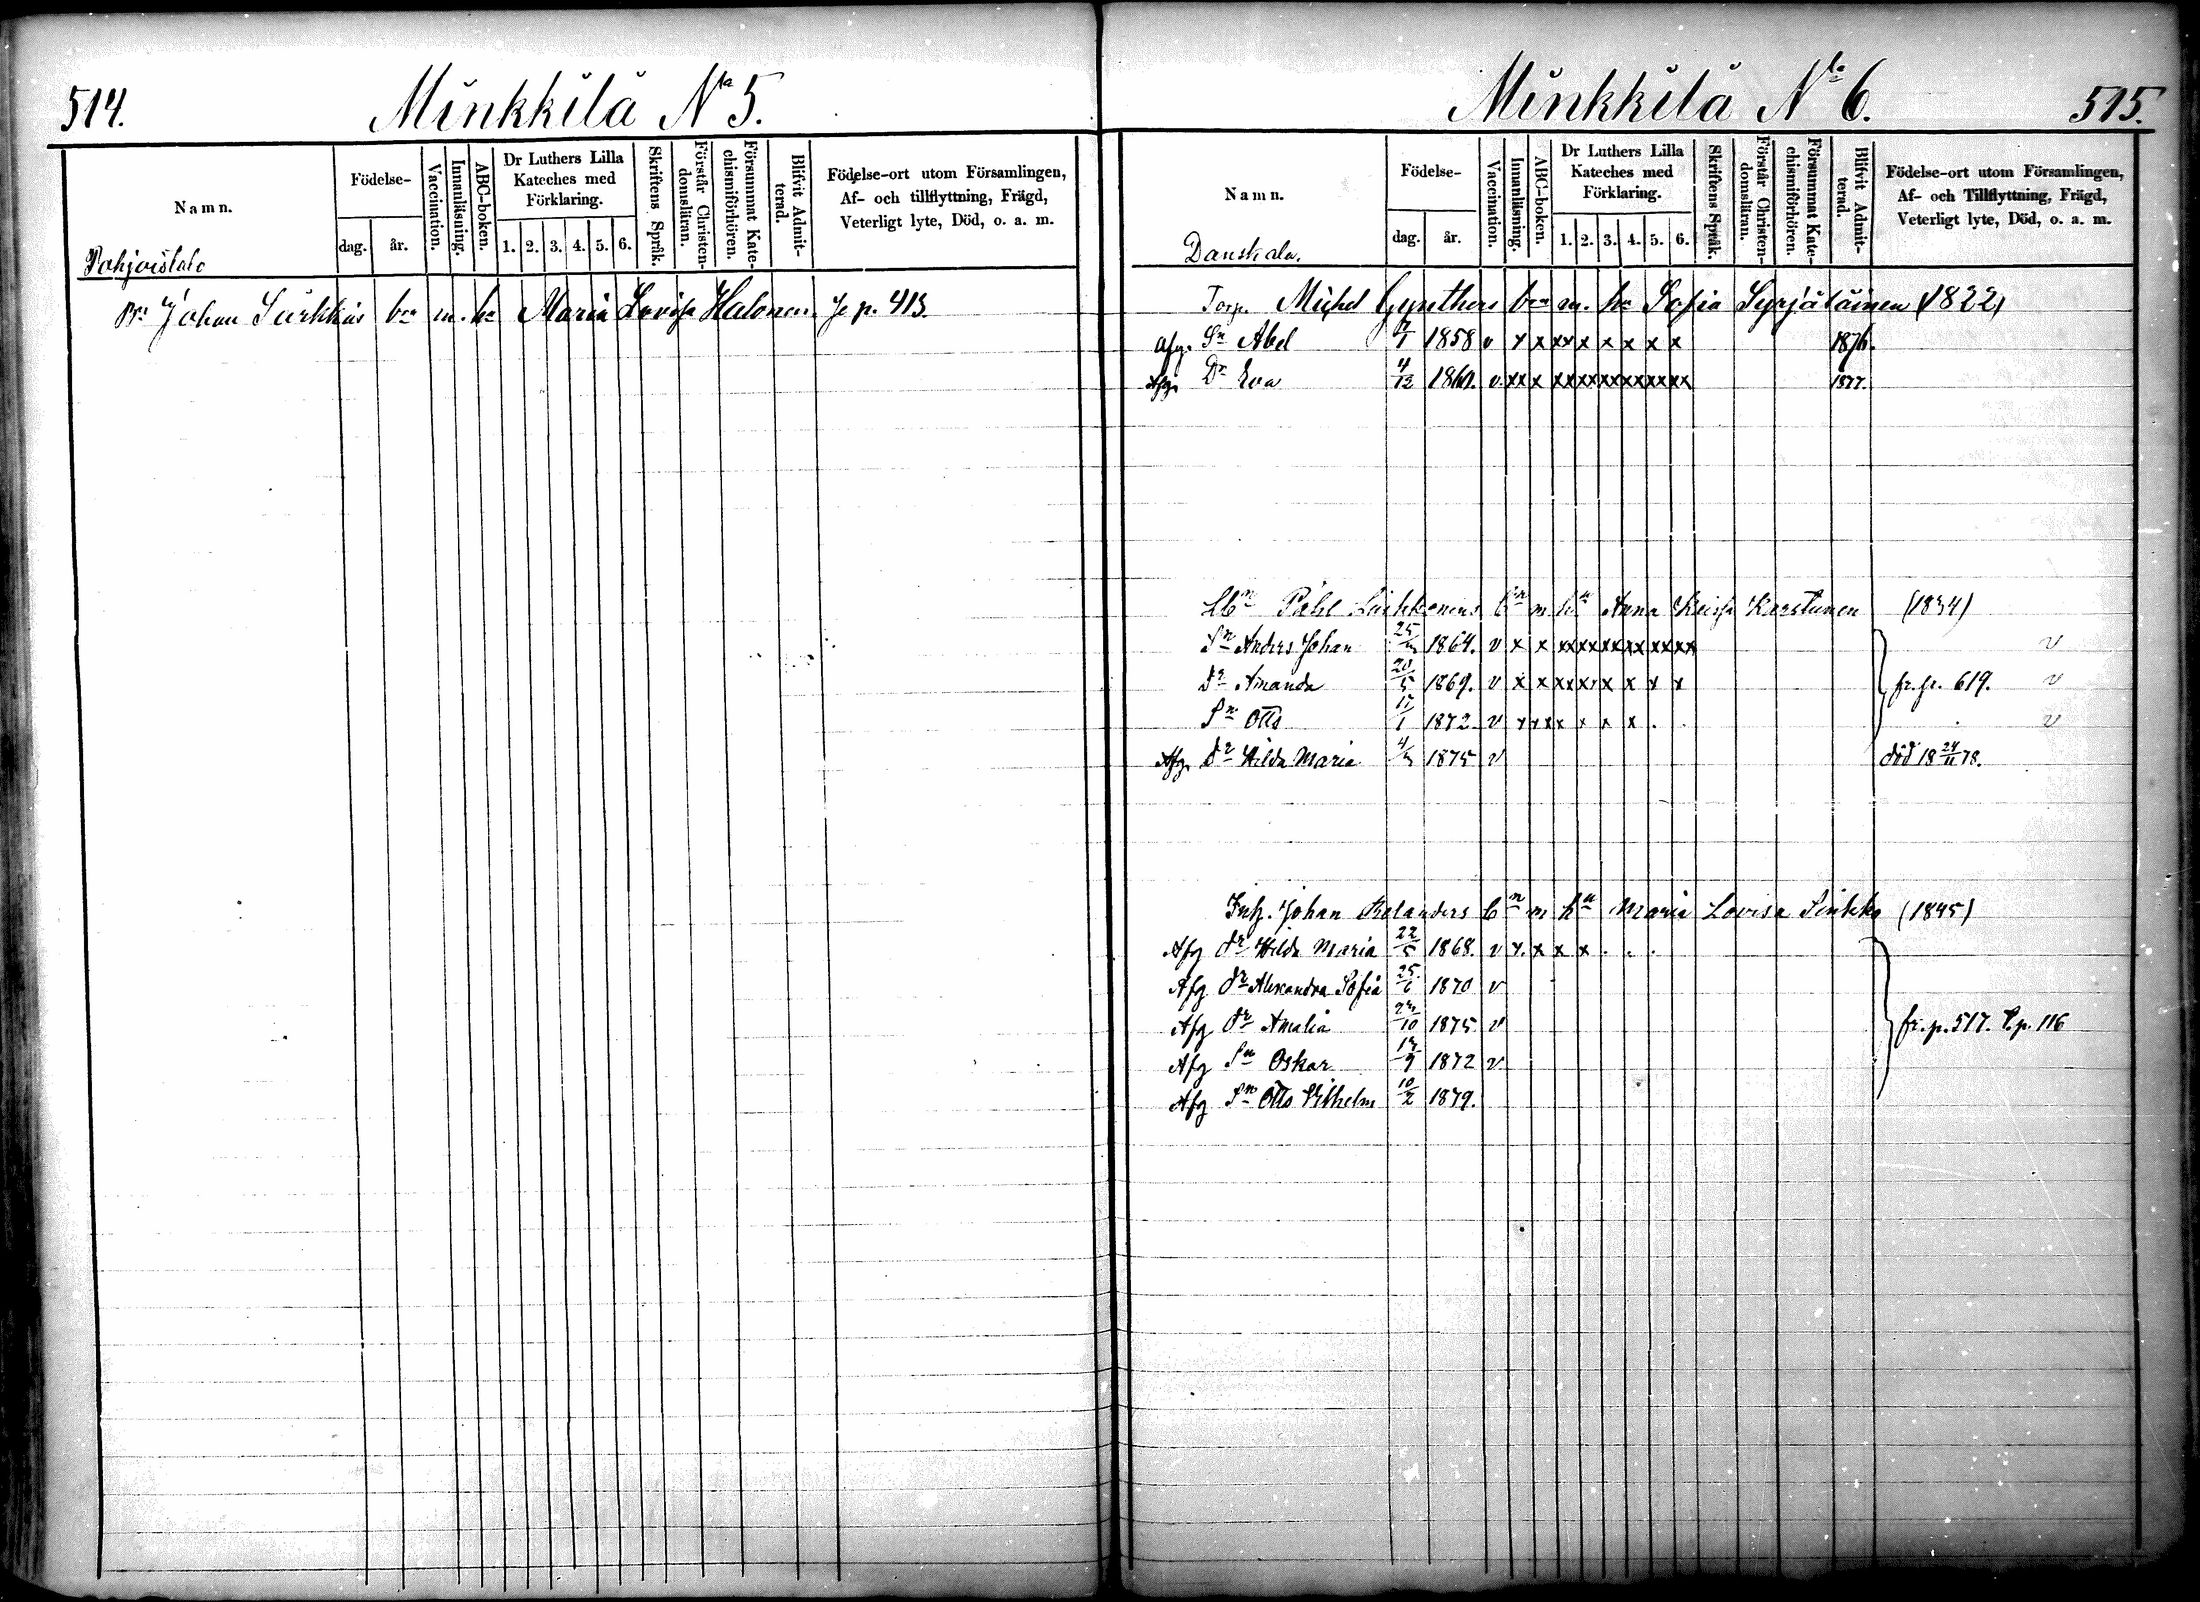 514.
Minkkilä No 5.
Namn.
Födelse-
dag.
år.
Vaccination.
Innanläsning.
ABC-boken.
Dr Luthers Lilla
Kateches med
Förklaring.
1. 2. 3. 4. 5. 6.
Skriftens Språk.
Förstår Christen-
domsläran.
Försummat Kate-
chismiförhören.
Blifvit Admit-
terad.
Födelse-ort utom Församlingen,
Af- och tillflyttning, Frägd,
Veterligt lyte, Död, o. a. m.
Pohjoistalo
Johan bn m. ha Maria Lovisa Halonen p. 413.
Minkkilä No 6.
515.
Namn.
Födelse-
dag.
år.
Vaccination.
Innanläsning.
ABC-boken.
Dr Luthers Lilla
Kateches med
Förklaring.
1. 2. 3. 4. 5. 6.
Skriftens Språk.
Förstår Christen-
domsläran.
Försummat Kate-
chismiförhören.
Blifvit Admit-
terad.
Födelse-ort utom Församlingen,
Af- och Tillflyttning, Frägd,
Veterligt lyte, Död, o. a. m.
Danskala.
Torp. Michel Gynthers bn m. ha Sofia Syrjäläinen (1822)
Afg. Sn Abel 1858 v x x xx x x x x x 1876.
Afg. Dr Eva 4/12 1860. v xx x xx xx xx xx xx xx 1877.
Påhl bn m hu Anna Karstunen (1834)
Sn Anders Johan 1864. v x x xx xx xx xx xx xx v
dr Amanda 20/5 1869. v x x xx x x x x x fr. p. 619. v
Sn Otto 1872 v x x x x x x x . . v
Afg. dr Hilda Maria 1875 v död 18 24/11 78.
Inh. Johan Rolanders bn m hu Maria Lovisa Sinkko (1845)
Afg dr Hilda Maria 22/5 1868. v x. x x x . . .
Afg dr Alexandra Sofia 25/6 1870 v
Afg dr Amalia 1875 v fr. p. 517. p. 116
Afg Sn Oskar 1872 v
Afg Sn Otto Vilhelm 10/2 1879.